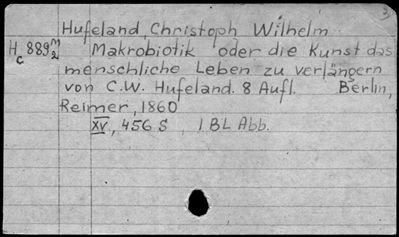 Hufeland, Christoph Wilhelm
Hc 889 m/2 Makrobiotik oder die Kunst das
menschliche Leben zu verlängern
von C.W. Hufeland. 8 Aufl. Berlin,
Reimer, 1860
XV, 456 S, 1 BL Abb.